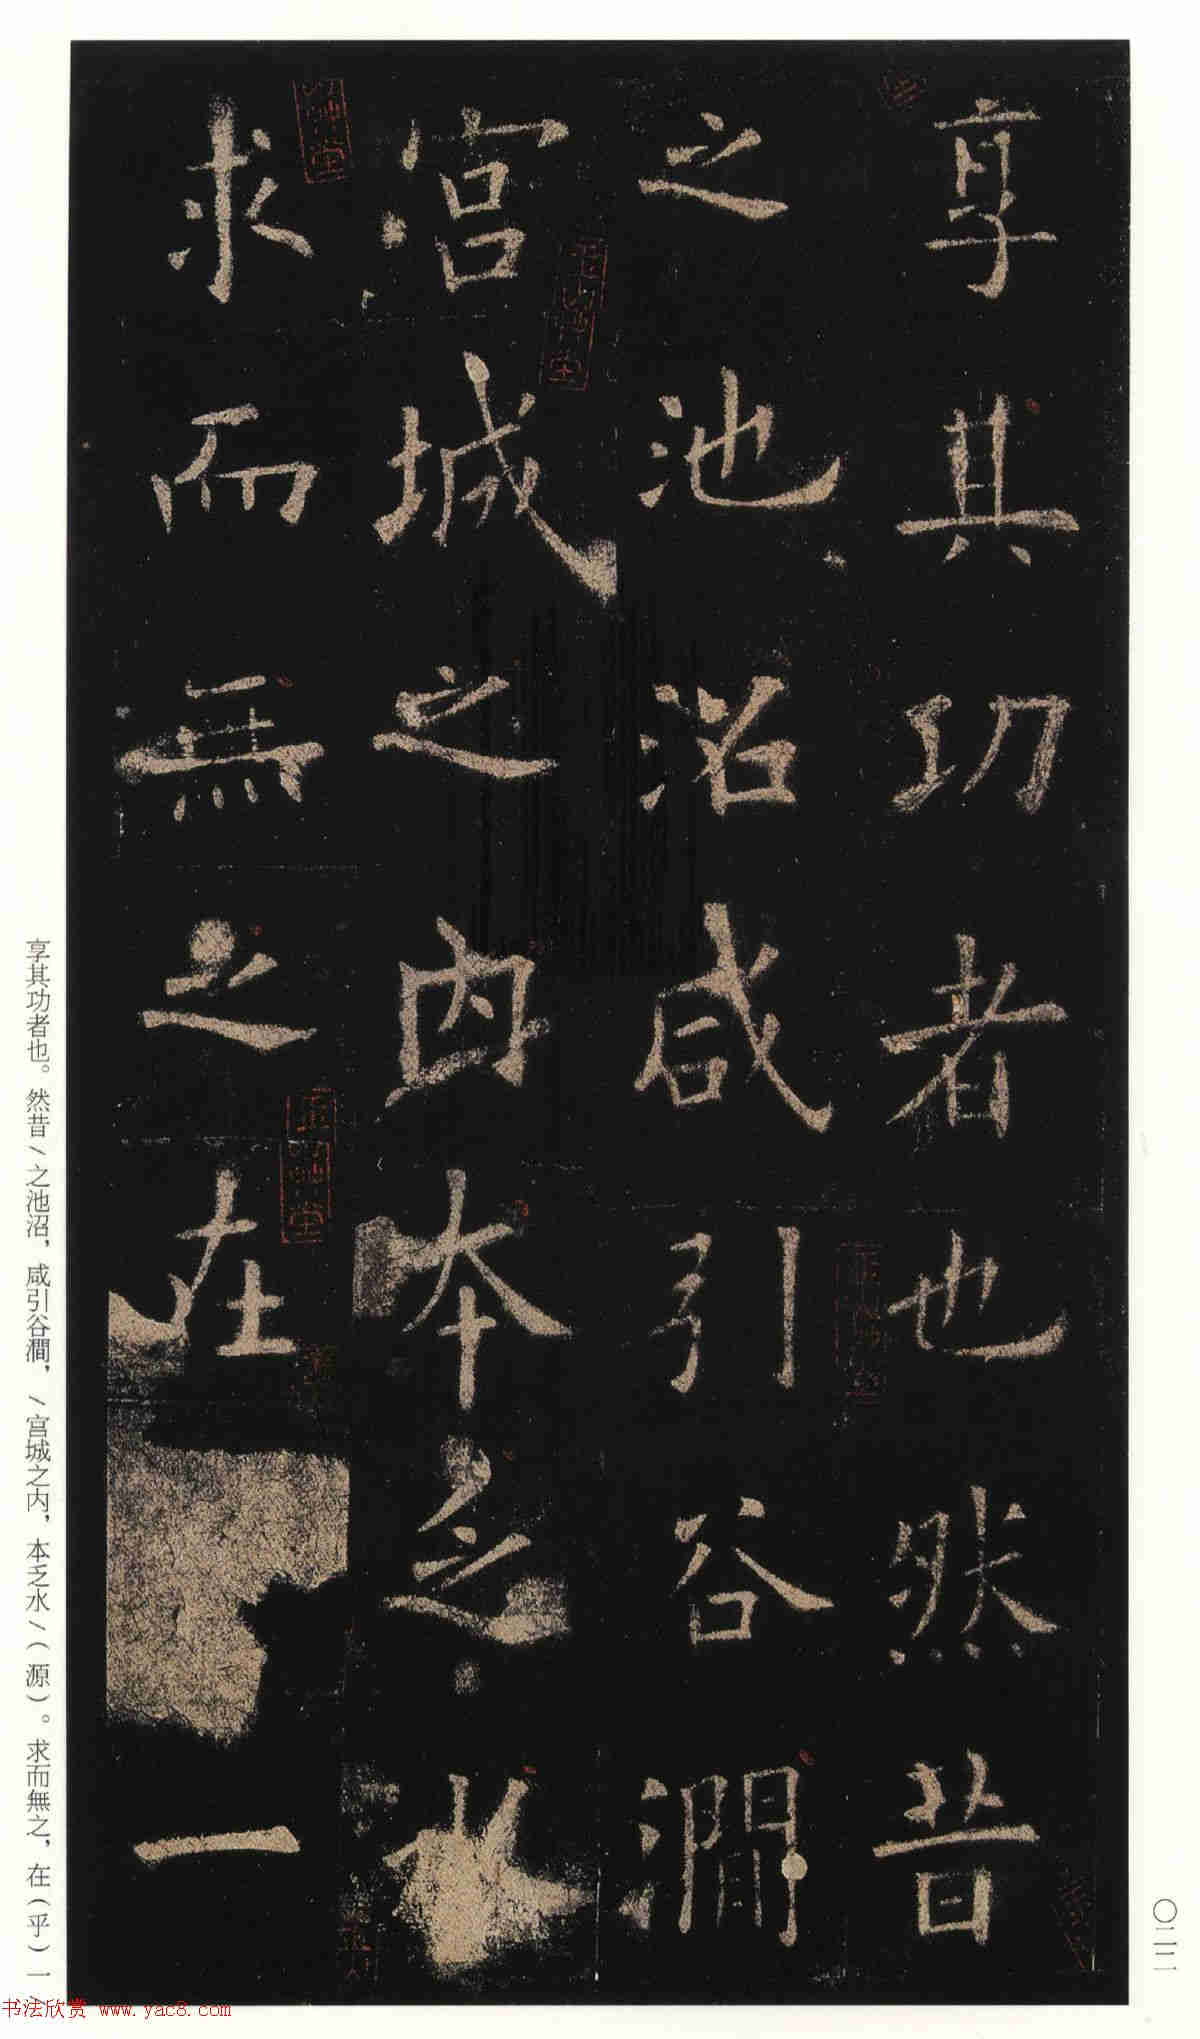 享其功者也然昔
之池沼咸引谷澗
宮城之内本乏水
求而無之在一
享其功者也。然昔/之池沼，咸引谷澗，/宫城之内，本乏水/（源）。求而無之，在（乎）一/
〇二二
书法欣赏 www.yac8.com